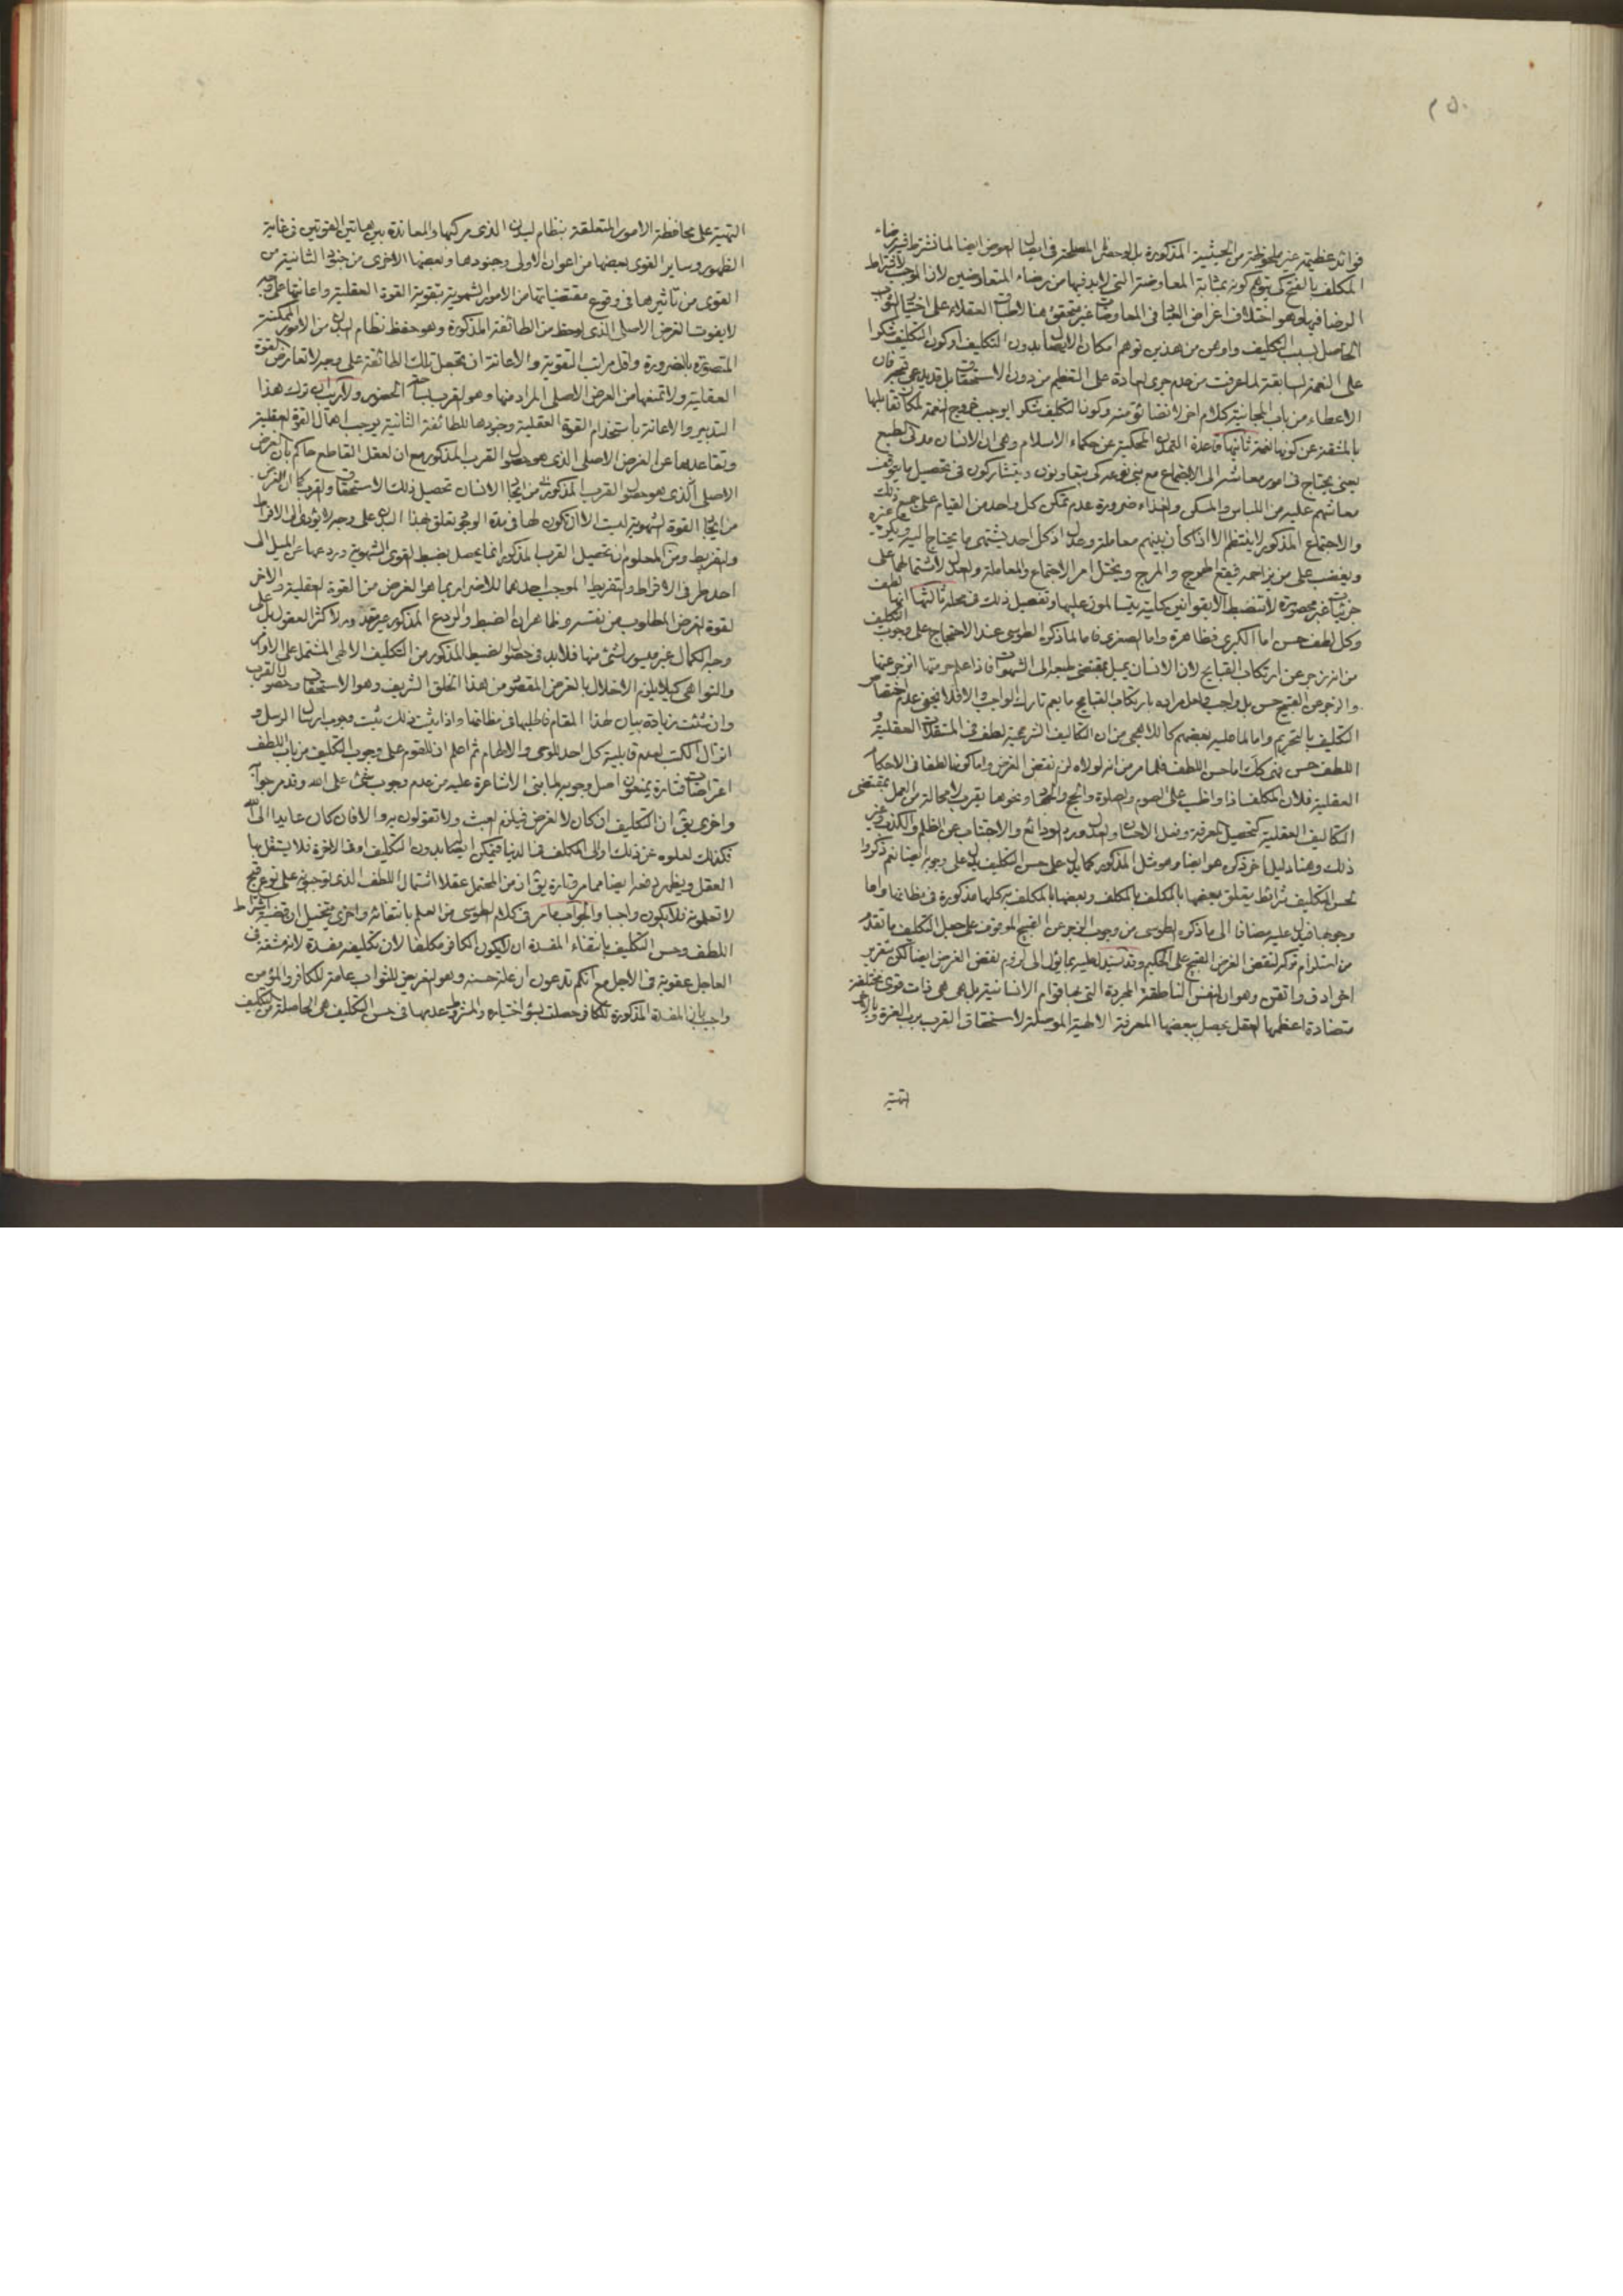 ٢٥٠
فوائد عظيمة غير ملحوظة من الحيثية المذكورة بل لوحظ المصلحة في ايصال العوض ايضا لما نشترط فيه رضاء
المكلف بالفتح كي يتوهم كونه بمثابة المعاوضة التي لابد فيها من رضاء المتعاوضين لان الموجب لاشتراط
الرضا فيها وهو اختلاف اغراض العقلاء في المعاوضات غير متحقق هنا لاطباق العقلاء على اختيار الثواب
الحاصل بسبب التكليف واوهن من هذين توهم امكان الايصال بدون التكليف او كون التكليف شكرا
على النعمة السابقة لما عرفت من عدم جرى العادة على التعظيم من دون الاستحقاق بل قد يدعى قبحه فان
الاعطاء من باب المجانية كلام اخر لا نضائق منه وكون التكليف شكرا يوجب خروج النعمة لمكان تقابلها
بالمشقة عن كونها نعمة ثانيها قاعدة التمدن المحكية عن حكماء الاسلام وهي ان الانسان مدني الطبع
يعني يحتاج في امور معاشه الى الاجتماع مع بني نوعه كي يتعاونون ويتشاركون في تحصيل ما يتوقف
معاشهم عليه من اللباس والمسكن والغذاء ضرورة عدم تمكن كل واحد من القيام على جميع ذلك
والاجتماع المذكور لا ينتظم الا اذا كان بينهم معاملة وعدل اذ كل احد يشتهى ما يحتاج اليه ويكره غيره
ويغضب على من يزاحمه فيقع الهرج والمرج ويختل امر الاجتماع والمعاملة والعدل لاشتمالهما على
جزئيات غير محصورة لا تنضبط الا بقوانين كلية يتسالمون عليها وتفصيل ذلك في محله ثالثها انها لطف
وكل لطف حسن اما الكبرى فظاهرة واما الصغرى فاما لما ذكره الطوسي عند الاحتجاج على وجوب التكليف
من انه زجر عن ارتكاب القبايح لان الانسان يميل بمقتضى طبعه الى الشهوات فاذا علم حرمتها انزجر عنها
والزجر عن القبيح حسن بل واجب ولعل مراده بارتكاب القبايح ما يعم تارك الواجب والا فلا يخفى عدم اختصاص
التكليف بالتحريم واما لما عليه بعضهم كاللاهجي من ان التكاليف الشرعية لطف في المستقلات العقلية و
اللطف حسن فهي كك اما حسن اللطف فلما مر من انه لولاه لزم نقض الغرض واما كونها لطفا في الاحكام
العقلية فلان المكلف اذا واظب على الصوم والصلوة والحج والجهاد ونحوها يقرب لا محالة من العمل بمقتضى
التكاليف العقلية كتحصيل المعرفة وفعل الاحسان والعدل ورد الودائع والاجتناب عن الظلم والكذب وغير
ذلك وهنا دليل اخر ذكره هو ايضا وهو مثل المذكور كما يدل على حسن التكليف يدل على وجوبه ايضا نعم ذكروا
لحسن التكليف شرائط يتعلق بعضها بالمكلف بالمكلف وبعضها بالمكلف به كلها مذكورة في مظانها واما
وجوبها فيدل عليه مضافا الى ما ذكره الطوسي من وجوب الزجر عن القبيح الموقوف على جعل التكليف ما تقدم
من استلزام تركه لنقض الغرض القبيح على الحكيم وقد يستدل عليه بما يؤل الى لزوم نقض الغرض ايضا لكن بتقرير
اخر ادق واتقن وهو ان النفس الناطقة المجردة التي بها قوام الانسانية بل هي هي ذات قوى مختلفة
متضادة اعظمها العقل يحصل ببعضها المعرفة الالهية الموصلة لاستحقاق القرب برب العزة
التهية على محافظة الامور المتعلقة بنظام البدن الذي مركبها والمعاندة بين هاتين القوتين في غاية
الظهور وساير القوى بعضها من اعوان الاولى وجنودها وبعضها الاخرى من جنود الثانية
القوى من تاثيرها في وقوع مقتضياتها من الامور الشهوية بتقوية القوة العقلية واعانتها على وجه
لا يفوت الغرض الاصلي الذي لوحظ من الطائفة المذكورة وهو حفظ نظام البدن من الامور الممكنة
المتصورة بالضرورة واقل مراتب التقوية والاعانة ان تجعل تلك الطائفة على وجه لا تعارض القوة
العقلية ولا تمنعها من الغرض الاصلي المراد منها وهو القرب الحضور ولا ريب ان ترك هذا
التدبير والاعانة باستخدام القوة العقلية وجنودها للطائفة الثانية يوجب اهمال القوة العقلية
وتقاعدها عن الغرض الاصلي الذي هو حصول القرب المذكور مع ان العقل القاطع حاكم بان الغرض
الاصلي الذي هو حصول القرب المذكور من ايجاد الانسان تحصيل ذلك الاستحقاق والقرب كما ان الغرض
من ايجاد القوة الشهوية ليست الا ان تكون لها في مدة الوجود تعلق بهذا البدن على وجه لا يؤدى الى الافراط
والتفريط ومن المعلوم ان تحصيل القرب المذكور انما يحصل بضبط القوى الشهوية وردعها عن الميل الى
احد طرفي الافراط والتفريط الموجب احدهما للاضرار بما هو الغرض من القوة العقلية والاخر
لقوة الغرض المطلوب من نفسه وظاهر ان الضبط والردع المذكور غير مقدور لاكثر العقول بل على
وجه الكمال غير ميسور لشئ منها فلابد في حصول الضبط المذكور من التكليف الالهي المشتمل على الاوامر
والنواهي كيلا يلزم الاخلال بالغرض المقصود من هذا الخلق الشريف وهو الاستحقاق وحصول القرب
وان شئت زيادة بيان لهذا المقام فاطلبها في مظانها واذا ثبت ذلك ثبت وجوب ارسال الرسل و
انزال الكتب لعدم قابلية كل احد للوحى والالهام ثم اعلم ان للقوم على وجوب التكليف من باب اللطف
اعتراضات فتارة يمنعون اصل وجوبه لما بنى الاشاعرة عليه من عدم وجوب شئ على الله وقد مر جوابه
واخرى بق ان التكليف ان كان لا لغرض فيلزم العبث ولا تقولون به والا فان كان عايدا الى الله
فكذلك لعلوه عن ذلك او الى المكلف في الدنيا فتمكن ايصاله بدون التكليف او في الاخرة فلا يستقل بها
العقل ويظهر دفعه ايضا مما مر وتارة بق ان من المحتمل عقلا اشتمال اللطف الذي توجبونه على نوع قبح
لا تعلمونه فلا يكون واجبا والجواب ما مر في كلام الطوسي من العلم بانتفائه واخرى بتخيل ان قضية اشتراط
اللطف وحسن التكليف بانتفاء المفسدة ان لا يكون الكافر مكلفا لان تكليفه مفسدة لانه مشقة في
العاجل عقوبة في الاجل مع انكم تدعون ان علة حسنه وهو التعريض للثواب عامة للكافر والمؤمن
واجيب بان المفسدة المذكورة للكافر حصلت بسوء اختياره والمشروط عدمها في حسن التكليف هي الحاصلة من التكليف
التهية